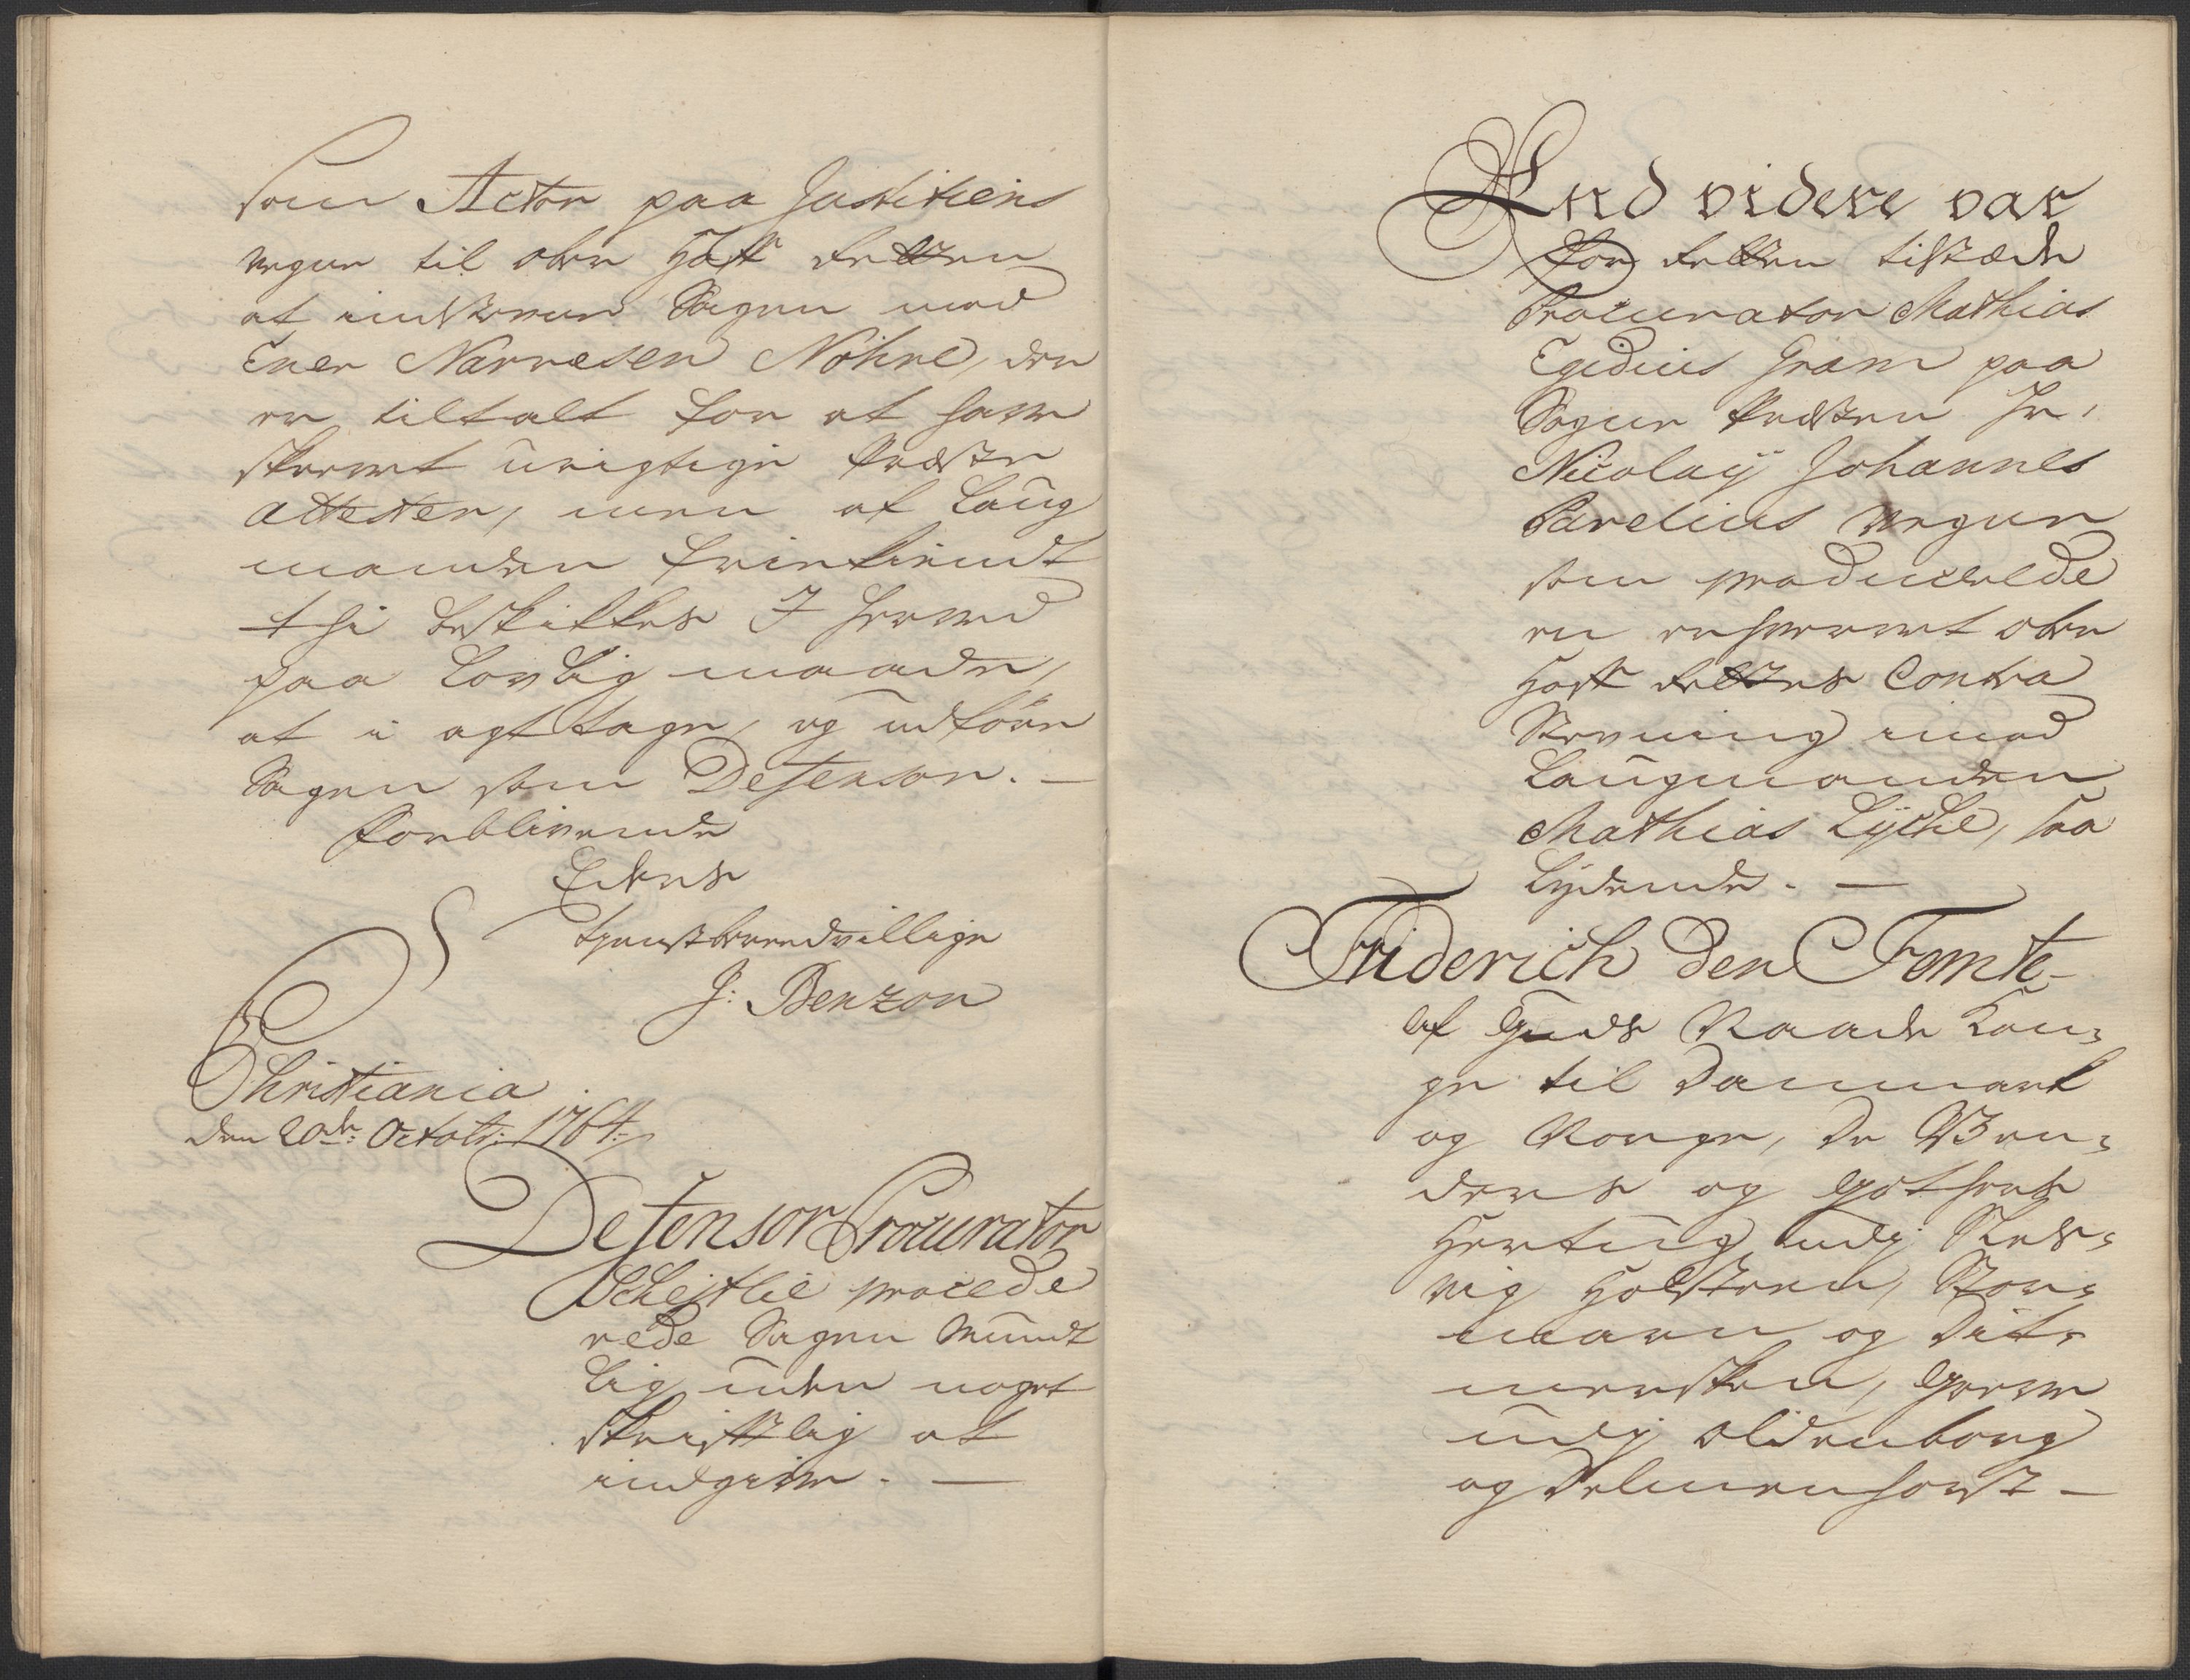 som Actor paa Justitiens
vegne til ober Hoff Retten
at indstevne Sagen mod
Ener Narvesen Nöhre, der
er tiltalt for at have
skrevet urigtige Præste
Attester, men af Laug
manden frikiendt
thi beskikkes I herved
paa Lovlig maade,
at i agt tage, og udföre
Sagen som Defensor. —
Forblivende
Eders
tjenstberedvillige
J: Benzon
Christiania
den 20de: Octobr: 1764.
Defensor Procurator
Scheitlie procede
rede Sagen Mundt
lig uden noget
skriftlig at
indgive. —
End videre var
for Retten tilstæde
Procurator Mathias
Egidius Gram paa
Sogne Præsten Hr.
Nicolaij Johannes
Parelius vegne
som producerede
en erhvervet ober
Hoff Rettes Contra
Stevning imod
Laugmanden
Mathias Lyche, saa
lydende. —
Friderich den Femte
af Guds Naade Kon¬
ge til Danmark
og Norge, de Ven¬
ders og Gothers
Hertug udj Sles¬
vig Holsteen, Stor¬
marn og Dit¬
mersken, Greve
udj Oldenborg
og Delmenhorst —